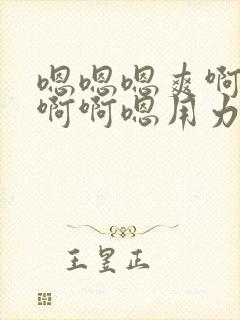 嗯嗯嗯爽啊
啊啊嗯用力
王昱正